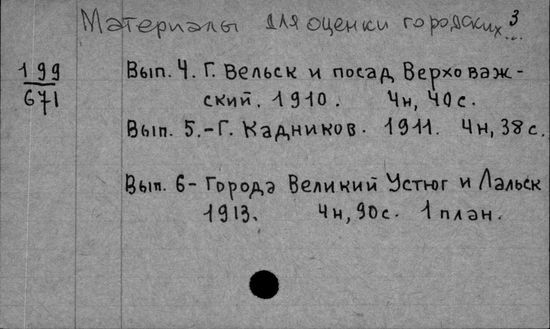 Материалы для оценки городских... 3
199
671
Вып. 4. Г. Вельск и посад Верховаж-
ский. 1910. 4н, 40с.
Вып. 5.-Г. Кадников. 1911. 4н, 38с.
Вып. 6- Города Великий Устюг и Лальск
1913. 4н, 90с. 1 план.